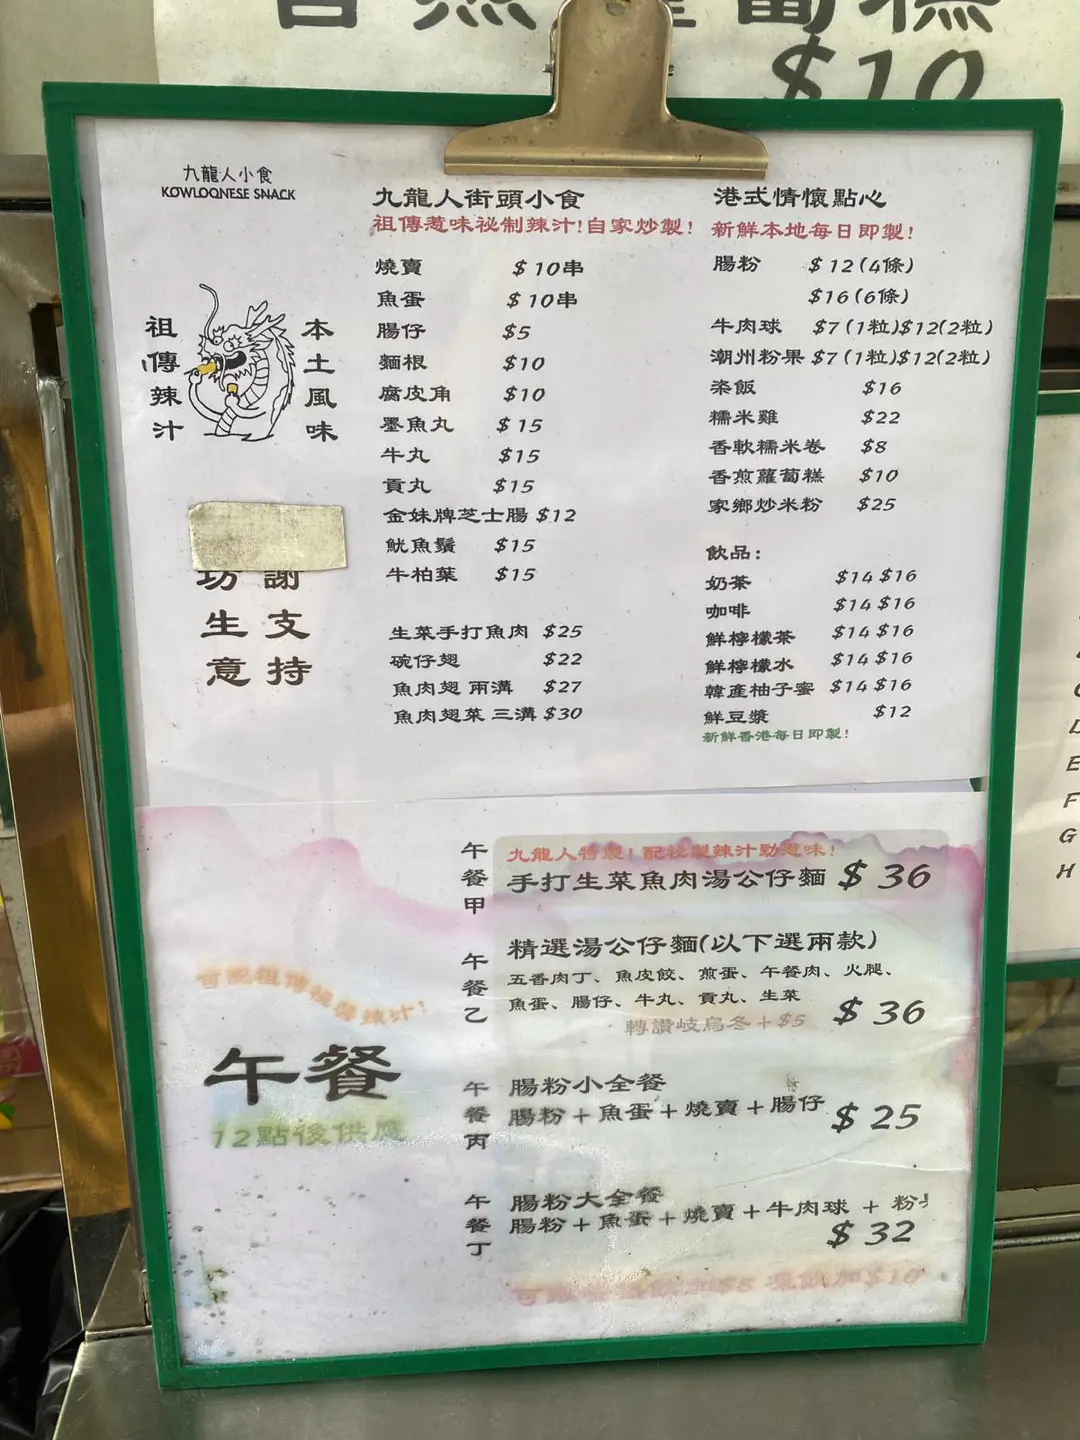 $10
九龍人小食
KOWLOONESE SNACK
祖傳辣汁
本土風味
謝
生意
支持
九龍人街頭小食
祖傳惹味祕制辣汁!自家炒製!
燒賣 $10串
魚蛋 $10串
腸仔 $5
麵根 $10
腐皮角 $10
墨魚丸 $15
牛丸 $15
貢丸 $15
金妹牌芝士腸 $12
魷魚鬚 $15
牛柏葉 $15
生菜手打魚肉 $25
碗仔翅 $22
魚肉翅 兩溝 $27
魚肉翅菜 三溝 $30
港式情懷點心
新鮮本地每日即製!
腸粉 $12(4條)
$16(6條)
牛肉球 $7(1粒)$12(2粒)
潮州粉果 $7(1粒)$12(2粒)
飯 $16
糯米雞 $22
香軟糯米卷 $8
香煎蘿蔔糕 $10
家鄉炒米粉 $25
飲品:
奶茶 $14 $16
咖啡 $14 $16
鮮檸檬茶 $14 $16
鮮檸檬水 $14 $16
韓產柚子蜜 $14 $16
鮮豆漿 $12
新鮮香港每日即製!
午餐
12點後供應
午餐甲
九龍人特製!配祕製辣汁勁惹味!
手打生菜魚肉湯公仔麵 $36
午餐乙
精選湯公仔麵(以下選兩款)
五香肉丁、魚皮餃、煎蛋、午餐肉、火腿、
魚蛋、腸仔、牛丸、貢丸、生菜
$36
轉讚岐烏冬+$5
午餐丙
腸粉小全餐
腸粉+魚蛋+燒賣+腸仔
$25
午餐丁
腸粉大全餐
腸粉+魚蛋+燒賣+牛肉球+粉
$32
E
F
G
H